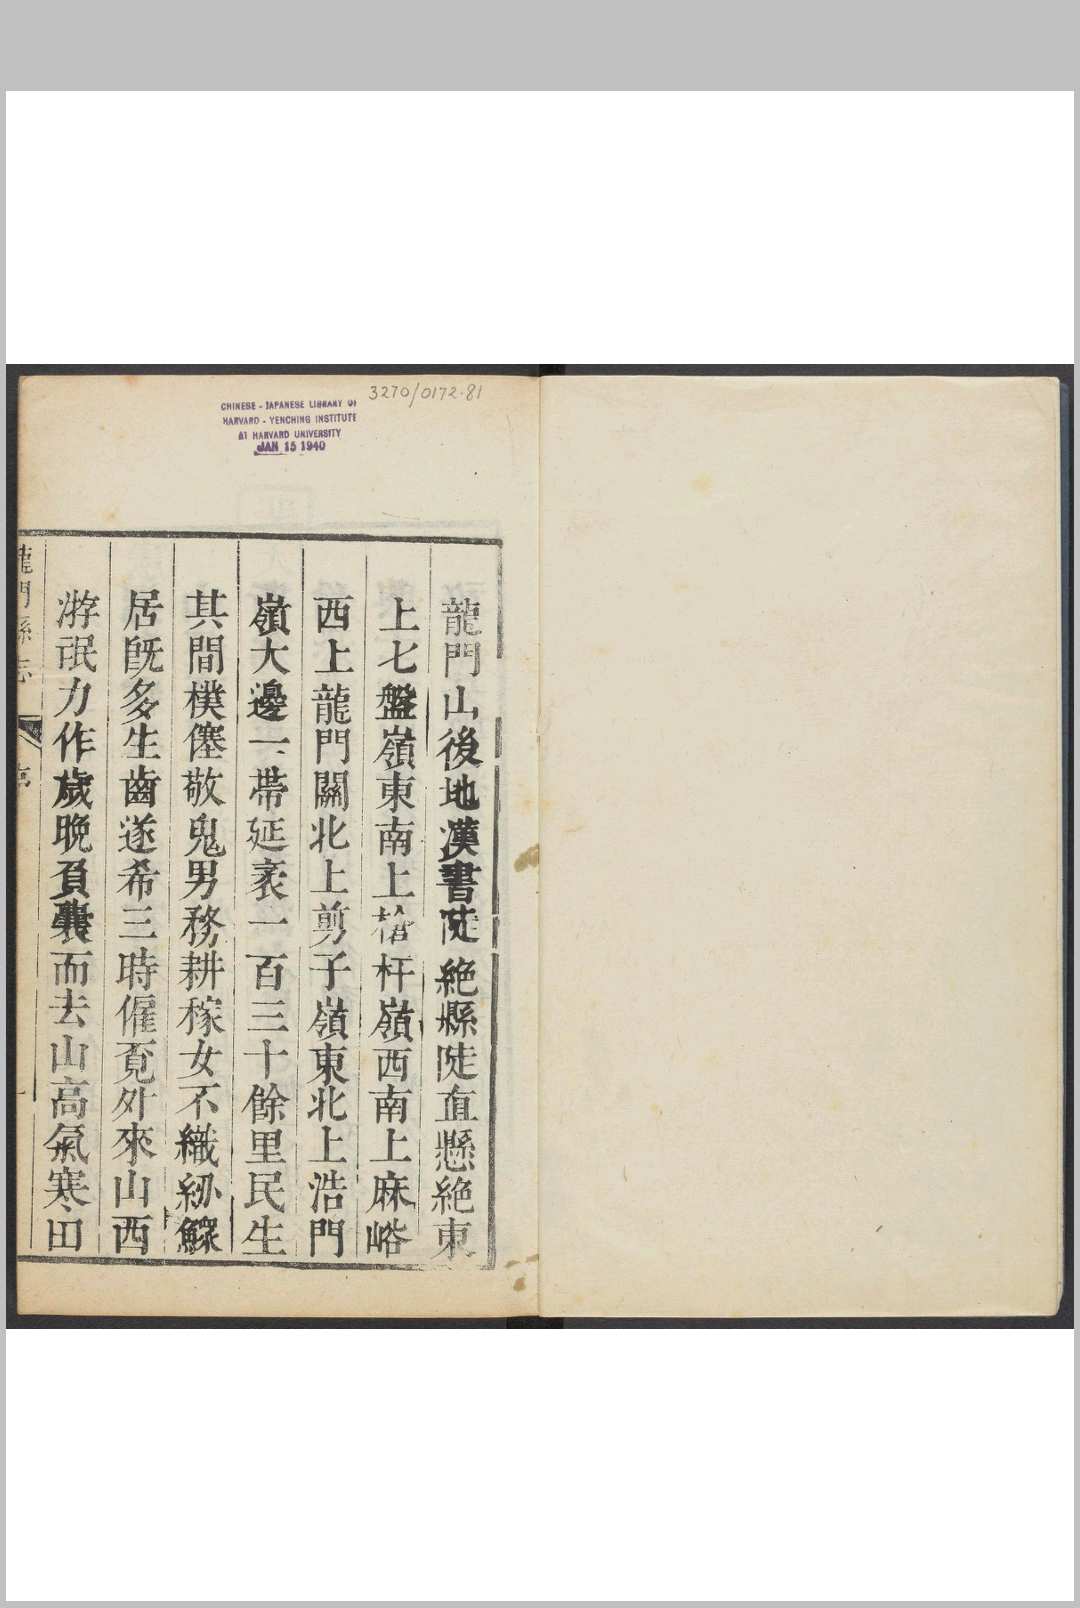 3270/0172.81
CHINESE - JAPANESE LIBRARY OF
HARVARD - YENCHING INSTITUTE
AT HARVARD UNIVERSITY
JAN 15 1940
龍門山後地漢書陡絕縣陡直懸絕東
上七盤嶺東南上槍杆嶺西南上麻峪
西上龍門關北上剪子嶺東北上浩門
嶺大邊一帶延袤一百三十餘里民生
其間樸僿敬鬼男務耕稼女不織紉鰥
居旣多生齒遂希三時僱覔外來山西
游氓力作歲晚負囊而去山高氣寒田
龍門縣志